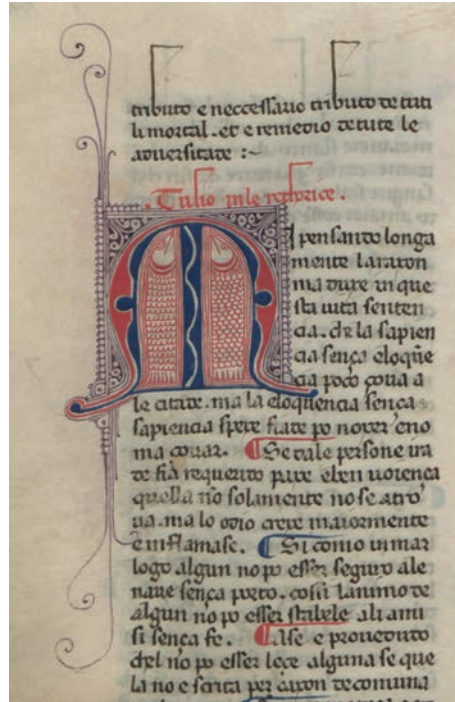 tributo e neccessario tributo de tuti
li mortal. et e remedio de tute le
aduersitade :~
. Tulio in le rethorice .
M I pensando longa
mente la raxon
ma dure in que
sta uita senten
cia. de la sapien
cia sença eloqueͣ
cia poco çoua a
le citate. ma la eloquencia sença
sapiencia spese fiate po noxer e no
ma çouar. ¶ Se tale persone ira
de fia requerito pare elen uorença
quella no solamente no se atro
ua. ma lo odio crexe maiormente
e inflamase. ¶ Si como in mar
logo algun no po esser seguro a le
naue sença porto. cossi lanimo de
algun no po esser stabele a li ami
si sença fe. ¶ Ase e proueduto
chel no po esser leçe alguna se que
la no e scrita per caxon de comuna